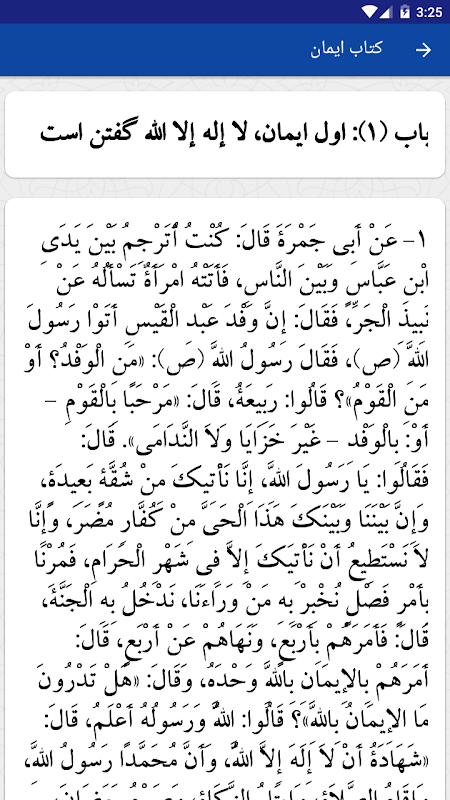 3:25
کتاب ایمان
باب (۱): اول ایمان، لا إله إلا الله گفتن است
۱- عَنْ أَبِی جَمْرَةَ قَالَ: كُنْتُ أُتَرْجِمُ بَيْنَ يَدَىِ
ابْنِ عَبَّاسٍ وَبَيْنَ النَّاسِ، فَأَتَتْهُ امْرَأَةٌ تَسْأَلُهُ عَنْ
نَبِيذِ الْجَرِّ، فَقَالَ: إِنَّ وَفْدَ عَبْدِ الْقَيْسِ أَتَوْا رَسُولَ
اللَّهِ (ص)، فَقَالَ رَسُولُ اللَّهِ (ص): «مَنِ الْوَفْدُ؟ أَوْ
مَنِ الْقَوْمُ»؟ قَالُوا: رَبِيعَةُ، قَالَ: «مَرْحَبًا بِالْقَوْمِ –
أَوْ: بِالْوَفْدِ – غَيْرَ خَزَايَا وَلاَ النَّدَامَى». قَالَ:
فَقَالُوا: يَا رَسُولَ اللَّهِ، إِنَّا نَأْتِيكَ مِنْ شُقَّةٍ بَعِيدَةٍ،
وَإِنَّ بَيْنَنَا وَبَيْنَكَ هَذَا الْحَىَّ مِنْ كُفَّارِ مُضَرَ، وَإِنَّا
لاَ نَسْتَطِيعُ أَنْ نَأْتِيَكَ إِلاَّ فِى شَهْرِ الْحَرَامِ، فَمُرْنَا
بِأَمْرٍ فَصْلٍ نُخْبِرْ بِهِ مَنْ وَرَاءَنَا، نَدْخُلُ بِهِ الْجَنَّةَ،
قَالَ: فَأَمَرَهُمْ بِأَرْبَعٍ، وَنَهَاهُمْ عَنْ أَرْبَعٍ، قَالَ:
أَمَرَهُمْ بِالإِيمَانِ بِاللَّهِ وَحْدَهُ، وَقَالَ: «هَلْ تَدْرُونَ
مَا الإِيمَانُ بِاللَّهِ»؟ قَالُوا: اللَّهُ وَرَسُولُهُ أَعْلَمُ، قَالَ:
«شَهَادَةُ أَنْ لاَ إِلَهَ إِلاَّ اللَّهُ، وَأَنَّ مُحَمَّدًا رَسُولُ اللَّهِ،